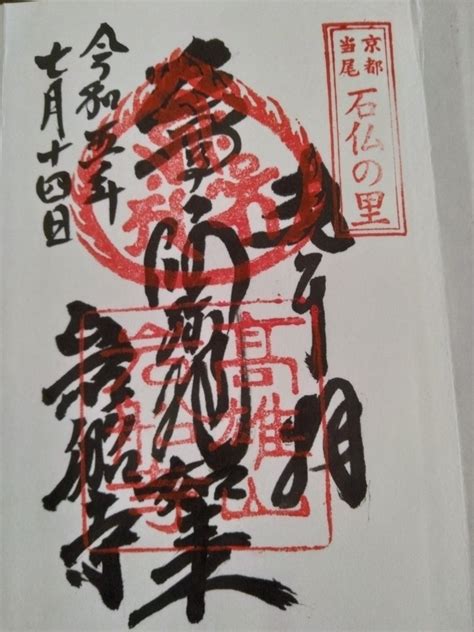 京都
当尾
石仏の里
奉拝
岩船寺
令和五年
七月十四日
高雄山
岩船寺